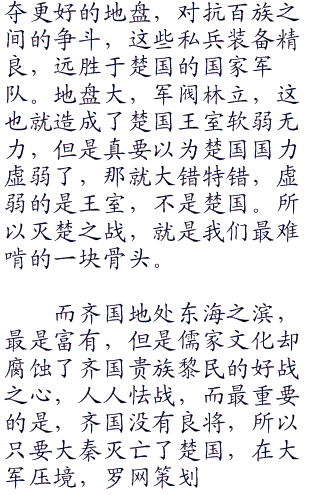 夺更好的地盘，对抗百族之
间的争斗，这些私兵装备精
良，远胜于楚国的国家军
队。地盘大，军阀林立，这
也就造成了楚国王室软弱无
力，但是真要以为楚国国力
虚弱了，那就大错特错，虚
弱的是王室，不是楚国。所
以灭楚之战，就是我们最难
啃的一块骨头。
而齐国地处东海之滨，
最是富有，但是儒家文化却
腐蚀了齐国贵族黎民的好战
之心，人人怯战，而最重要
的是，齐国没有良将，所以
只要大秦灭亡了楚国，在大
军压境，罗网策划